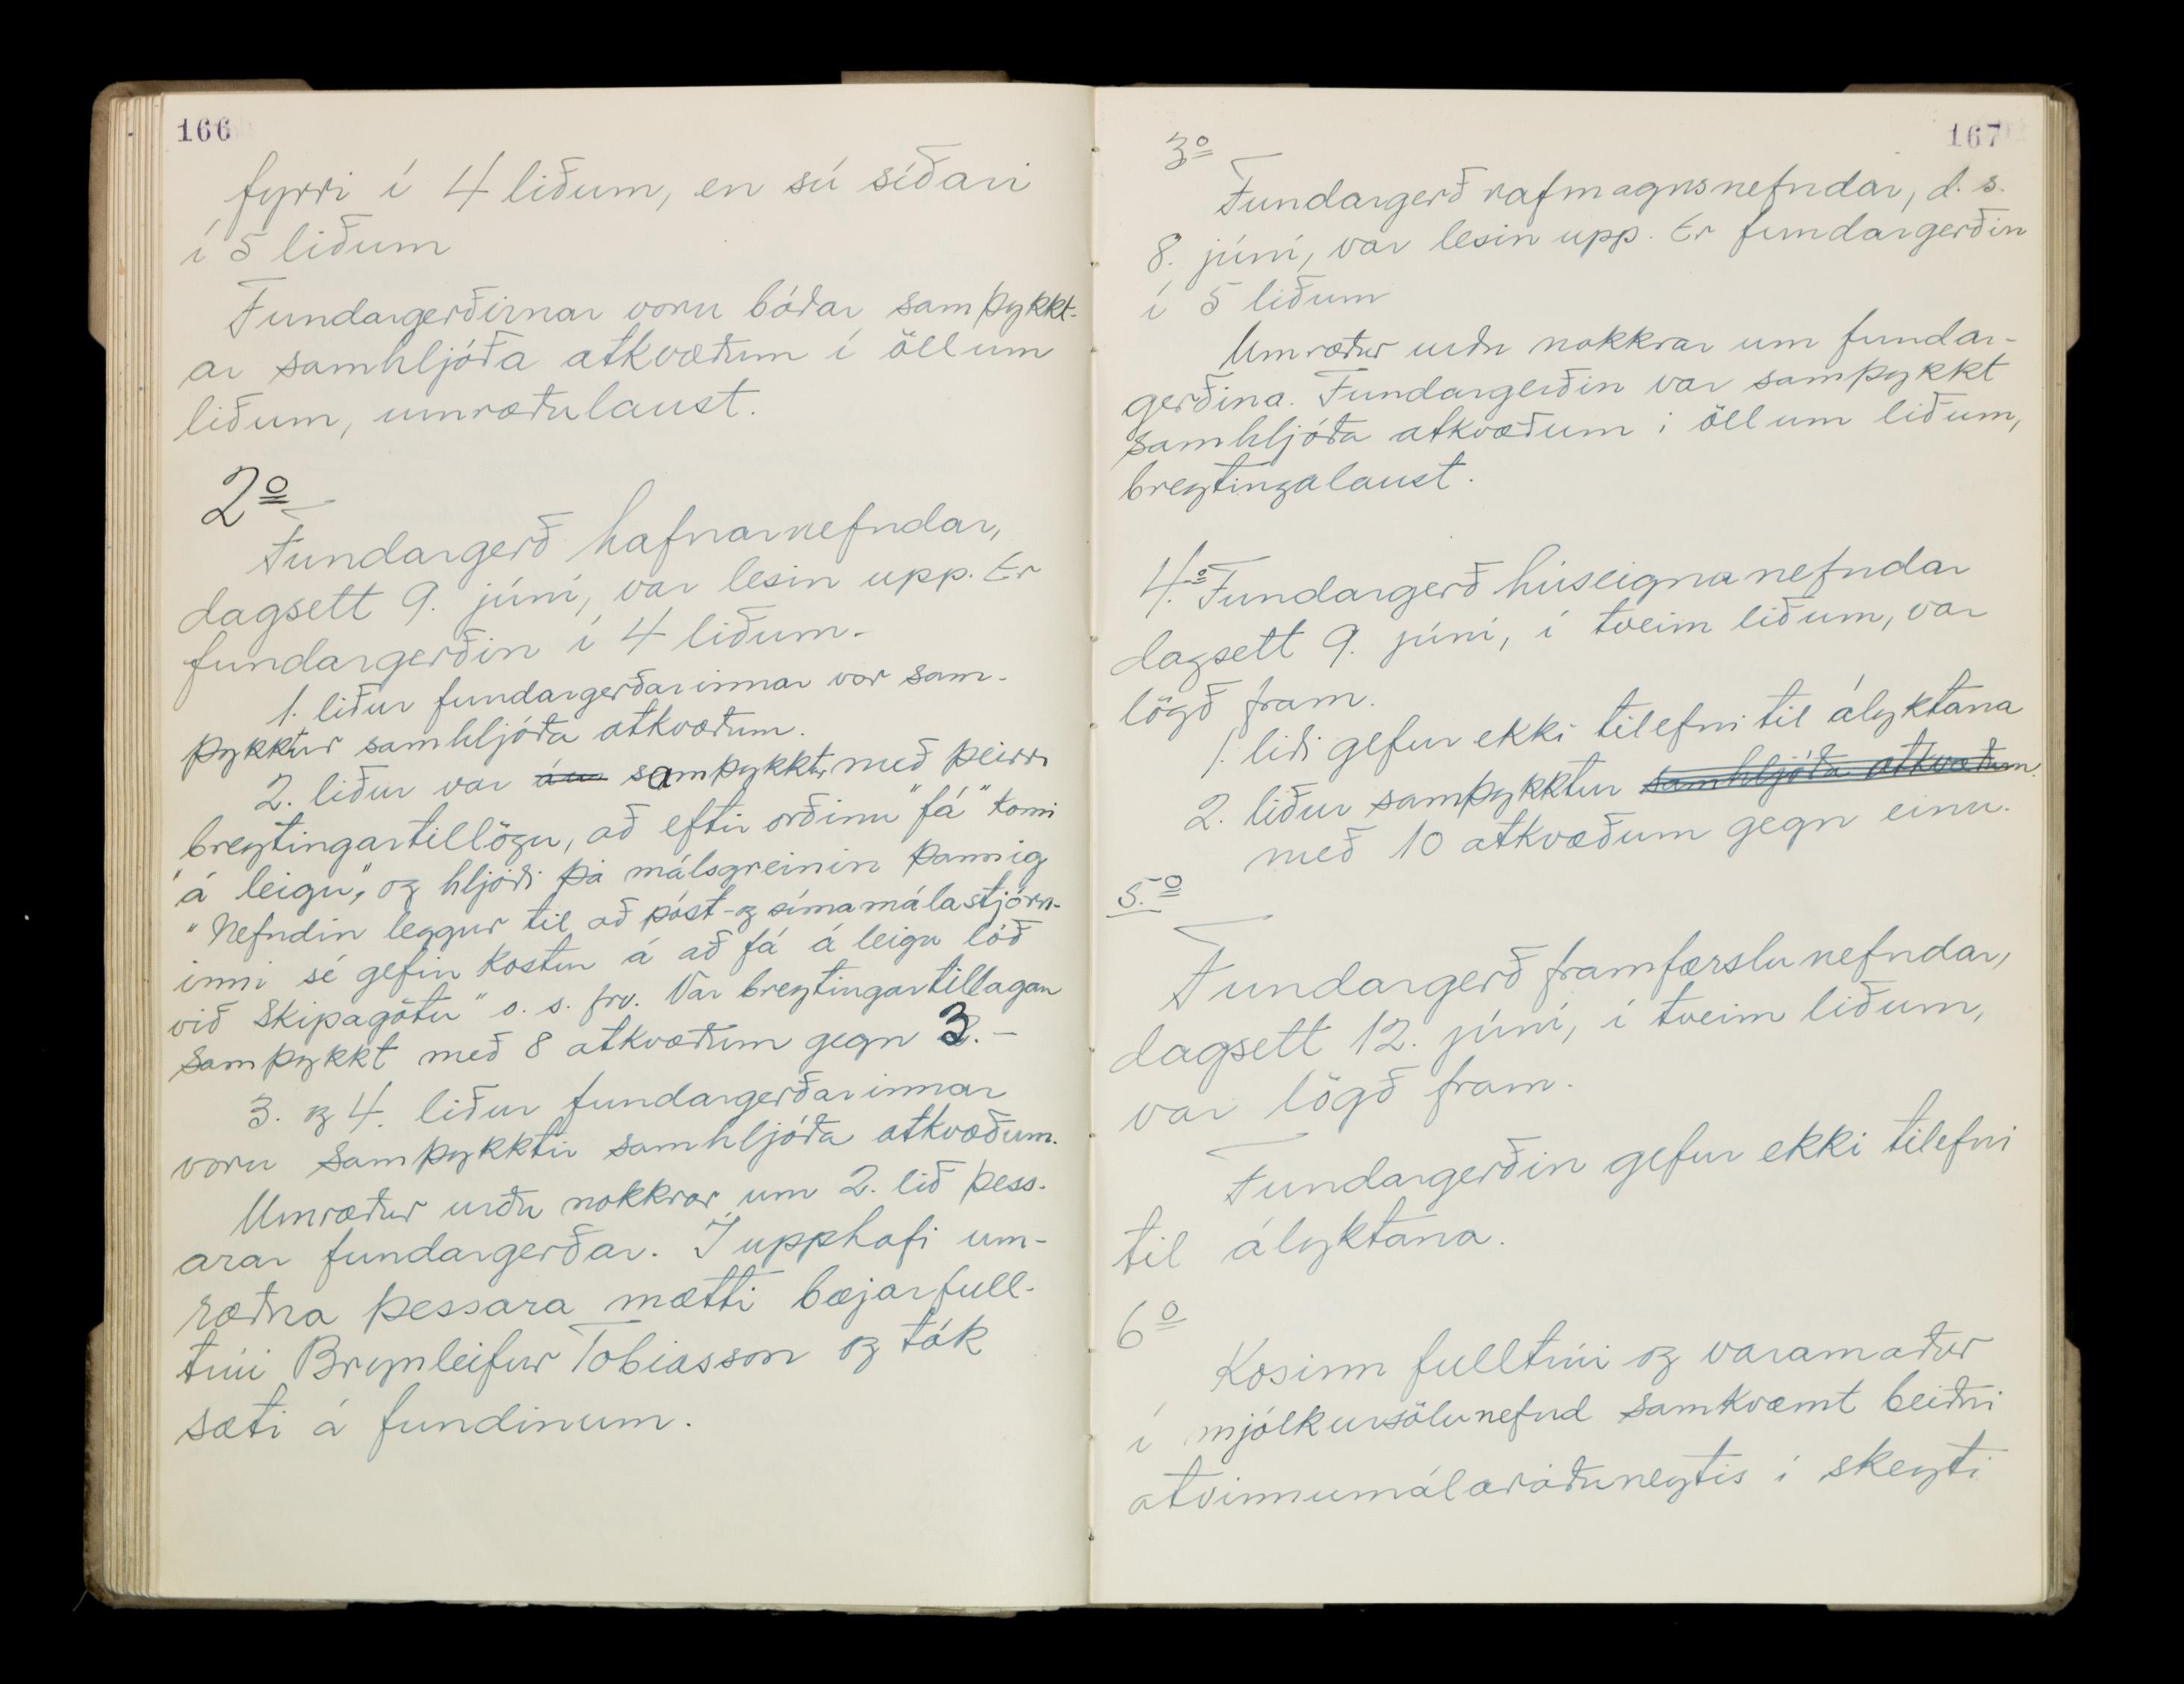 166
fyrri í 4 liðum, en sú síðari
í 5 liðum
Fundargerðirnar voru báðar samþykkt-
ar samhljóða atkvæðum í öllum
liðum, umræðulaust.
2º
Fundargerð hafnarnefndar,
dagsett 9. júní, var lesin upp. Er
fundargerðin í 4 liðum.
1. liður fundargerðarinnar var sam-
þykktur samhljóða atkvæðum.
2. liður var samþykktur með þeirri
breytingartillögu, að eftir orðinu "fá" komi
"á leigu", og hljóði þá málsgreinin þannig
"Nefndin leggur til að póst- og símamálastjórn-
inni sé gefin kostur á að fá á leigu lóð
við Skipagötu" o. s. frv. Var breytingartillagan
samþykkt með 8 atkvæðum gegn 3.-
3. og 4. liður fundargerðarinnar
voru samþykktir samhljóða atkvæðum.
Umræður urðu nokkrar um 2. lið þess-
arar fundargerðar. Í upphafi um-
ræðna þessara mætti bæjarfull-
trúi Brynleifur Tobiasson og tók
sæti á fundinum.
167
3º
Fundargerð rafmagnsnefndar, d. s.
8. júní, var lesin upp. Er fundargerðin
í 5 liðum
Umræður urðu nokkrar um fundar-
gerðina. Fundargerðin var samþykkt
samhljóða atkvæðum í öllum liðum,
breytingalaust.
4.º Fundargerð húseignanefndar
dagsett 9. júní, í tveim liðum, var
lögð fram.
1. liði gefur ekki tilefni til ályktana
2. liður samþykktur samhljóða atkvæðum.
með 10 atkvæðum gegn einu.
5.º
Fundargerð framfærslunefndar,
dagsett 12. júní, í tveim liðum,
var lögð fram.
Fundargerðin gefur ekki tilefni
til ályktana.
6º
Kosinn fulltrúi og varamaður
í mjólkursölunefnd samkvæmt beiðni
atvinnumálaráðuneytis í skeyti